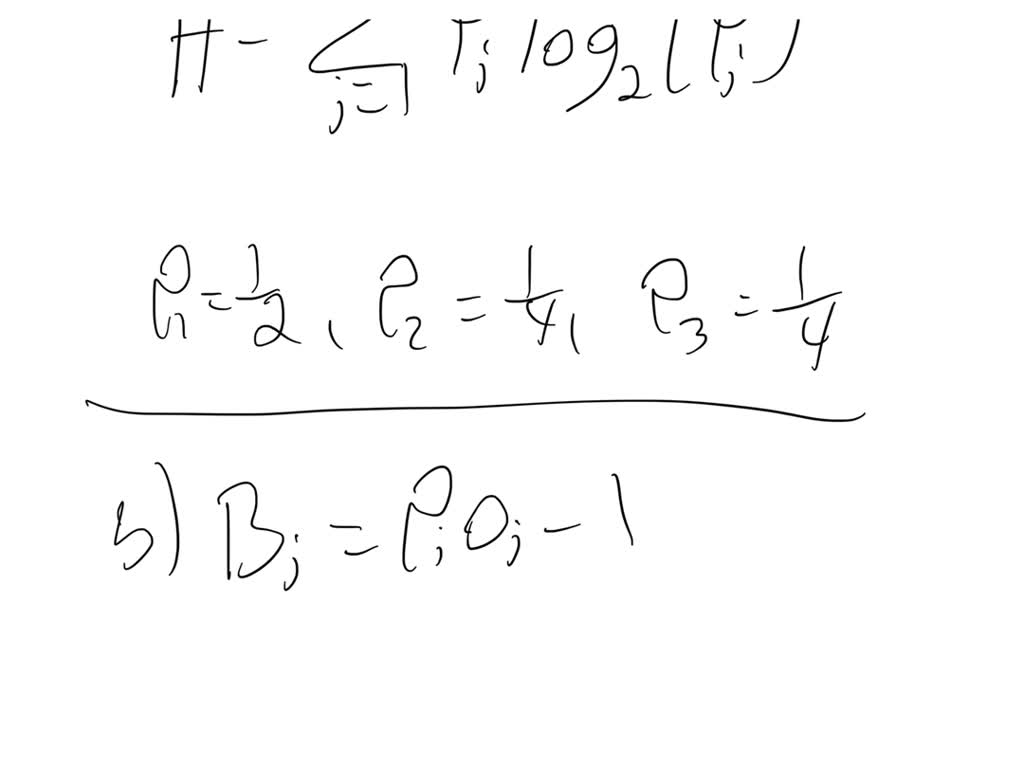 H - ∑ᵢ₌₁ Pᵢ log₂(Pᵢ)
P₁ = 1/2, P₂ = 1/4, P₃ = 1/4
b) Bᵢ = PᵢOᵢ - 1